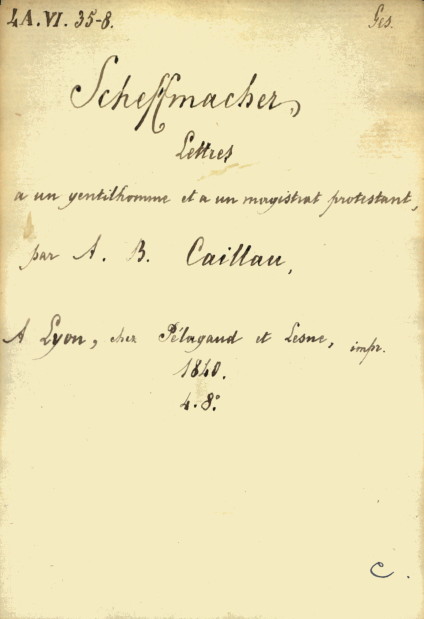 4A.VI. 35-8.
Ges.
Scheffmacher,
Lettres
a un gentilhomme et a un magistrat protestant,
par A. B. Caillau,
A Lyon, chez Pélagaud et Lesne, impr.
1840.
4. 8.º
C.